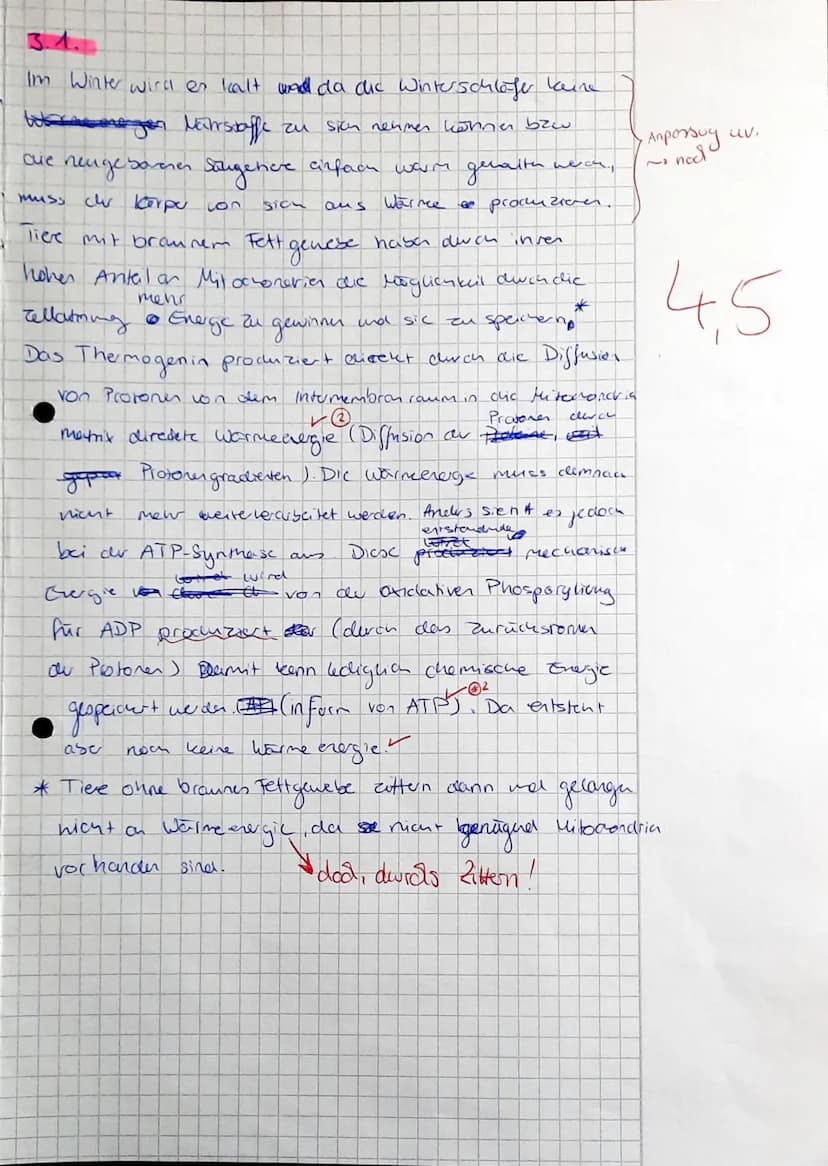 3.1.
Im Winter wird es kalt und da die Winterschläfer keine
Nährstoffe zu sich nehmen können bzw
die neugeborenen Säugetiere einfach warm gehalten werden,
muss der Körper von sich aus Wärme produzieren.
Anpassung
→
Tiere mit braunem Fettgewebe haben durch ihren
hohen Anteil an Mitochondrien die Möglichkeit durch die
mehr
Zellatmung Energie zu gewinnen und sie zu speichern.*
4,5
Das Thermogenin produziert direkt durch die Diffusion
von Protonen von dem Intermembranraum in die Mitochondrie
✓ 2
Protonen durch
matrix direkte Wärmeenergie (Diffusion der
Protonengradienten). Die Wärmeenergie muss demnach
nicht mehr weiterverarbeitet werden. Anders sieht es jedoch
entstandene
bei der ATP-Synthase aus Diese mechanische
wird
Energie von der oxidativen Phosporylierung
für ADP produziert (durch das Zurückströmen
der Protonen) Damit kann lediglich chemische Energie
✓ 2
gespeichert werden (in Form von ATP). Da entsteht
aber noch keine Wärmeenergie. ✓
* Tiere ohne braunes Fettgewebe zittern dann und gelangen
nicht an Wärmeenergie, da nicht genügend Mitochondrien
vorhanden sind.
doch, durchs Zittern!